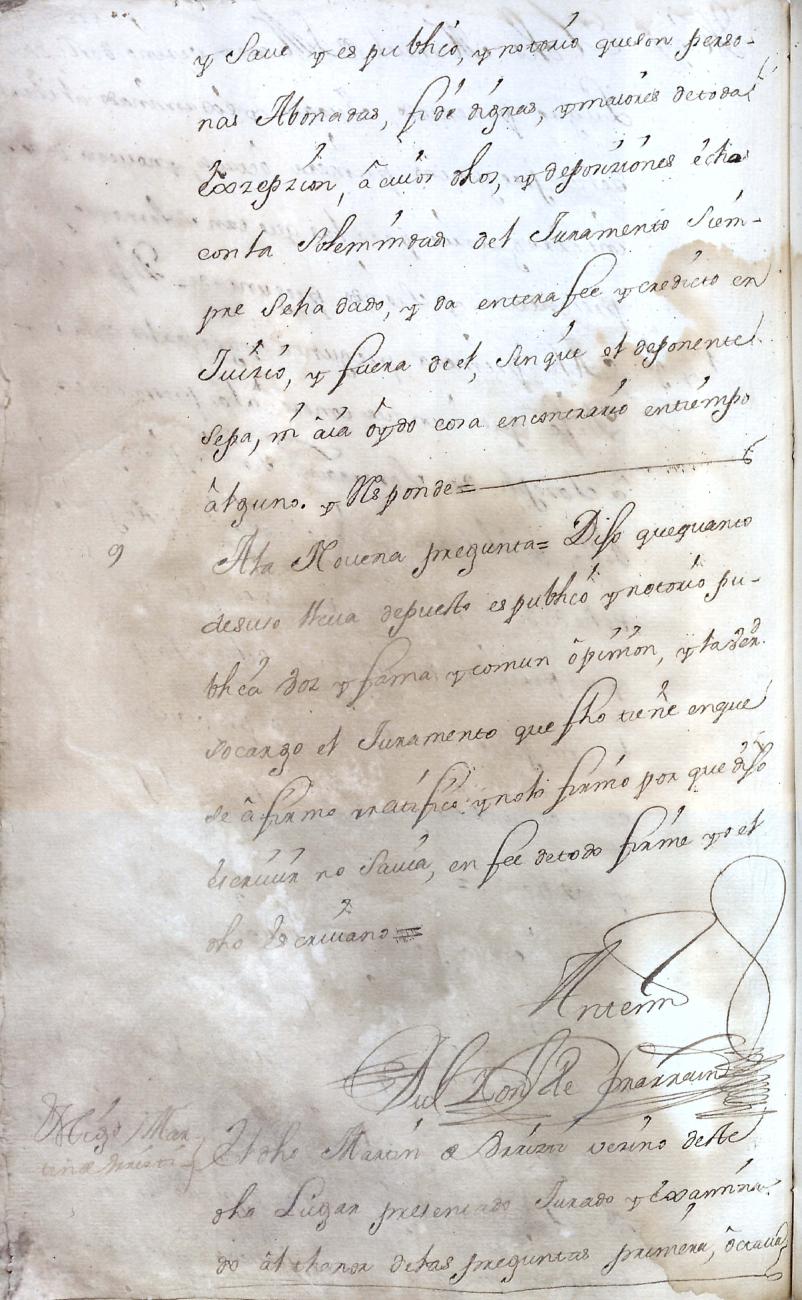 y Save y es publico, y notorio queson perso-
nas Abonadas, fidedignas, y maiores detoda
Exzepzion, â cuios dhos, y deposiziones echas
conla Solemnidad del Juramento Siem-
pre Seha dado, y da entera fee y credicto en
Juizio, y fuera deel, Sinque el deponente
Sepa, ni âia ôydo cosa encontrario entiempo
âlguno. y Responde=
9 Ala Novena pregunta= Dijo quequanto
desuso lleua depuesto espublico y notorio pu-
blica voz y fama y comun ôpinion, y la verd.
socargo el Juramento que fho tiene enque
se âfirmo rratifico y nolo firmo por que dijo
escriuir no Savia, en fee detodo firme yo el
dho Escriuano=
Antemi
Migo / Mar-
tin de
El dho Martin de vezino deste
dho Lugar presentado Jurado y Examina-
do âl thenor delas preguntas primera, ôctaua